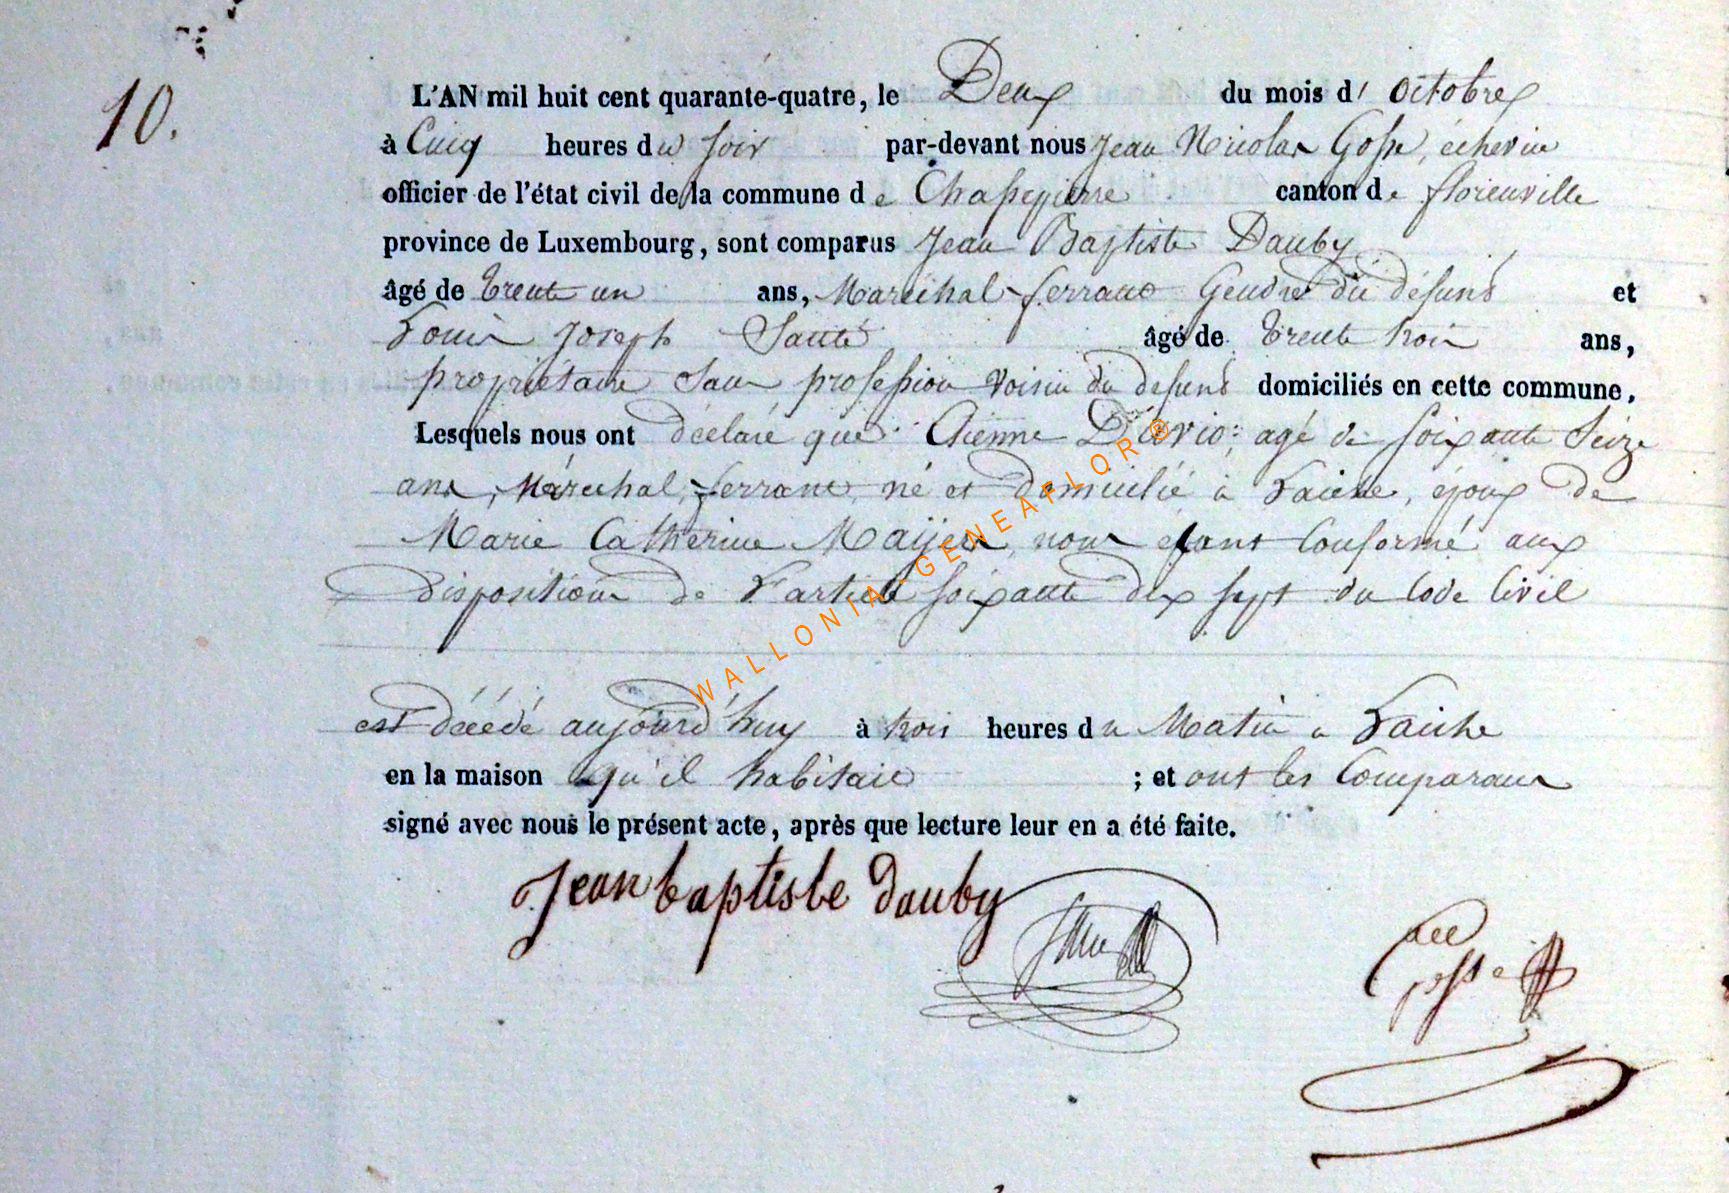 10.
L'AN mil huit cent quarante-quatre, le Deux du mois d'octobre
à Cinq heures du soir par-devant nous Jean Nicolas Gosse, échevin
officier de l'état civil de la commune de Chassepierre canton de florenville
province de Luxembourg, sont comparus Jean Baptiste Dauby
âgé de trente un ans, Maréchal-ferrant Gendre du défunt et
Louis Joseph Santé âgé de trente trois ans,
propriétaire sans profession voisin du defunt domiciliés en cette commune.
Lesquels nous ont déclaré que Etienne agé de soixante seize
ans, Maréchal, ferrant, né et domicilié à Laiche, époux de
Marie Catherine Maijers, nous étant conformé aux
dispositions de l'article soixante dix sept du Code Civil
est décédé aujourd'huy à trois heures du Matin a Laiche
en la maison qu'il habitait ; et ont les Comparans
signé avec nous le présent acte, après que lecture leur en a été faite.
Jean baptiste dauby
Gosse
WALLONIA-GENEAFLOR®